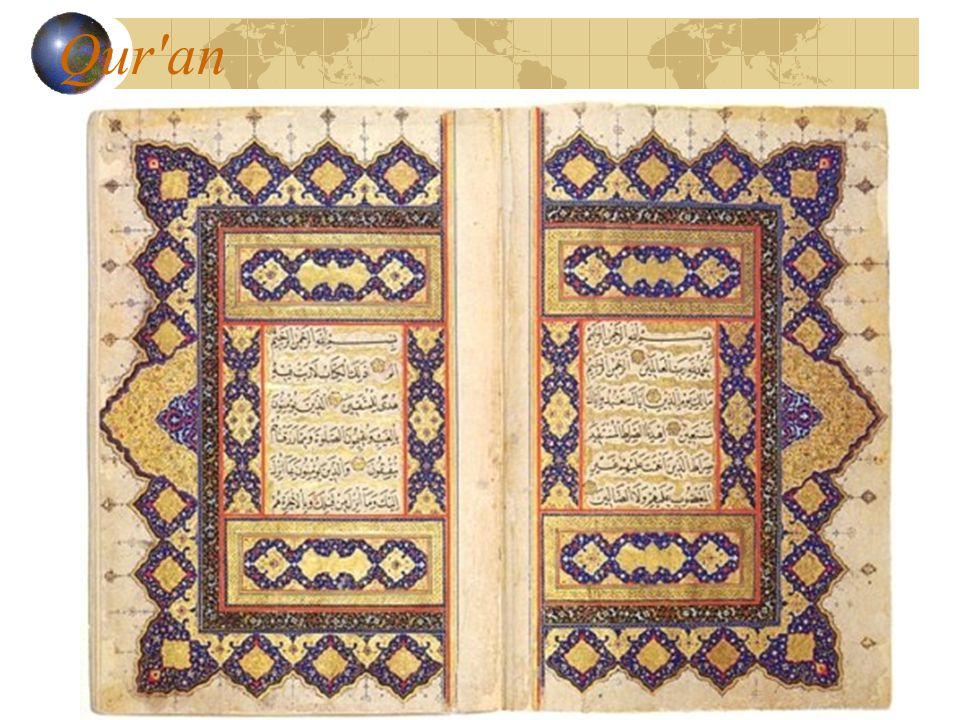 Qur'an
بسم الله الرحمن الرحيم
الحمد لله رب العالمين الرحمن الرحيم
مالك يوم الدين اياك نعبد واياك
نستعين اهدنا الصراط المستقيم
صراط الذين انعمت عليهم غير
المغضوب عليهم ولا الضالين
بسم الله الرحمن الرحيم
الم ذلك الكتاب لا ريب فيه
هدى للمتقين الذين يؤمنون
بالغيب ويقيمون الصلوة ومما رزقناهم
ينفقون والذين يؤمنون بما انزل
اليك وما انزل من قبلك وبالاخرة هم